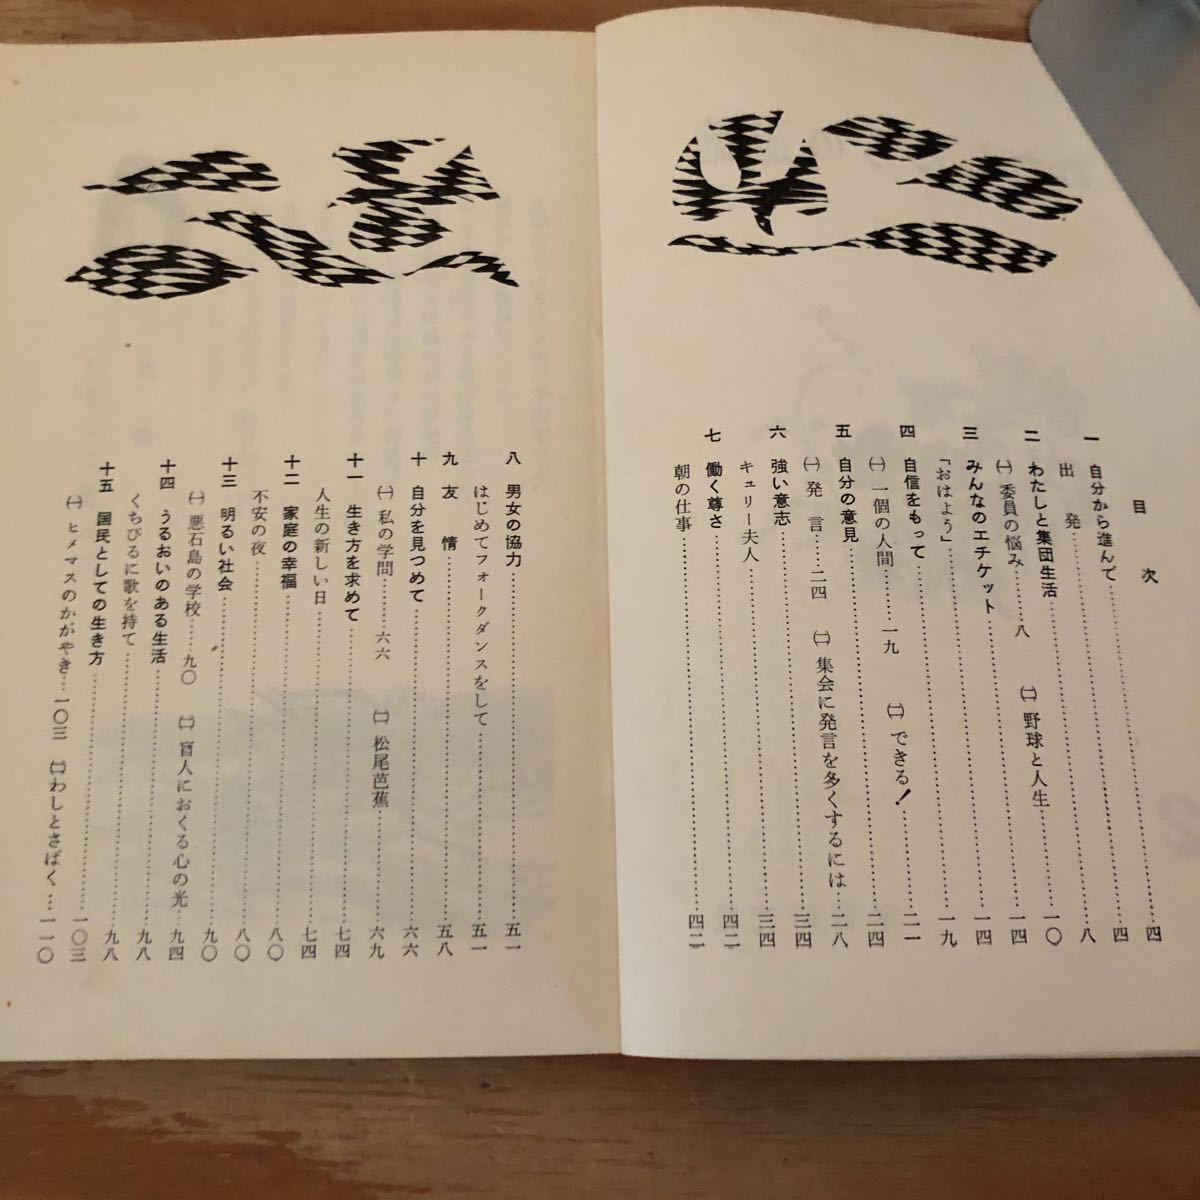 目次
一 自分から進んで……四
出発……四
二 わたしと集団生活……八
㈠ 委員の悩み……八 ㈡ 野球と人生……一〇
三 みんなのエチケット……一四
「おはよう」……一四
四 自信をもって……一九
㈠ 一個の人間……一九 ㈡ できる!……二一
五 自分の意見……二四
㈠ 発言……二四 ㈡ 集会に発言を多くするには……二八
六 強い意志……三四
キュリー夫人……三四
七 働く尊さ……四二
朝の仕事……四二
八 男女の協力……五一
はじめてフォークダンスをして……五一
九 友情……五八
十 自分を見つめて……六六
㈠ 私の学問……六六 ㈡ 松尾芭蕉……六九
十一 生き方を求めて……七四
人生の新しい日……七四
十二 家庭の幸福……八〇
不安の夜……八〇
十三 明るい社会……九〇
㈠ 悪石島の学校……九〇 ㈡ 盲人におくる心の光……九四
十四 うるおいのある生活……九八
くちびるに歌を持て……九八
十五 国民としての生き方……一〇三
㈠ ヒメマスのかがやき…一〇三 ㈡ わしとさばく…一一〇